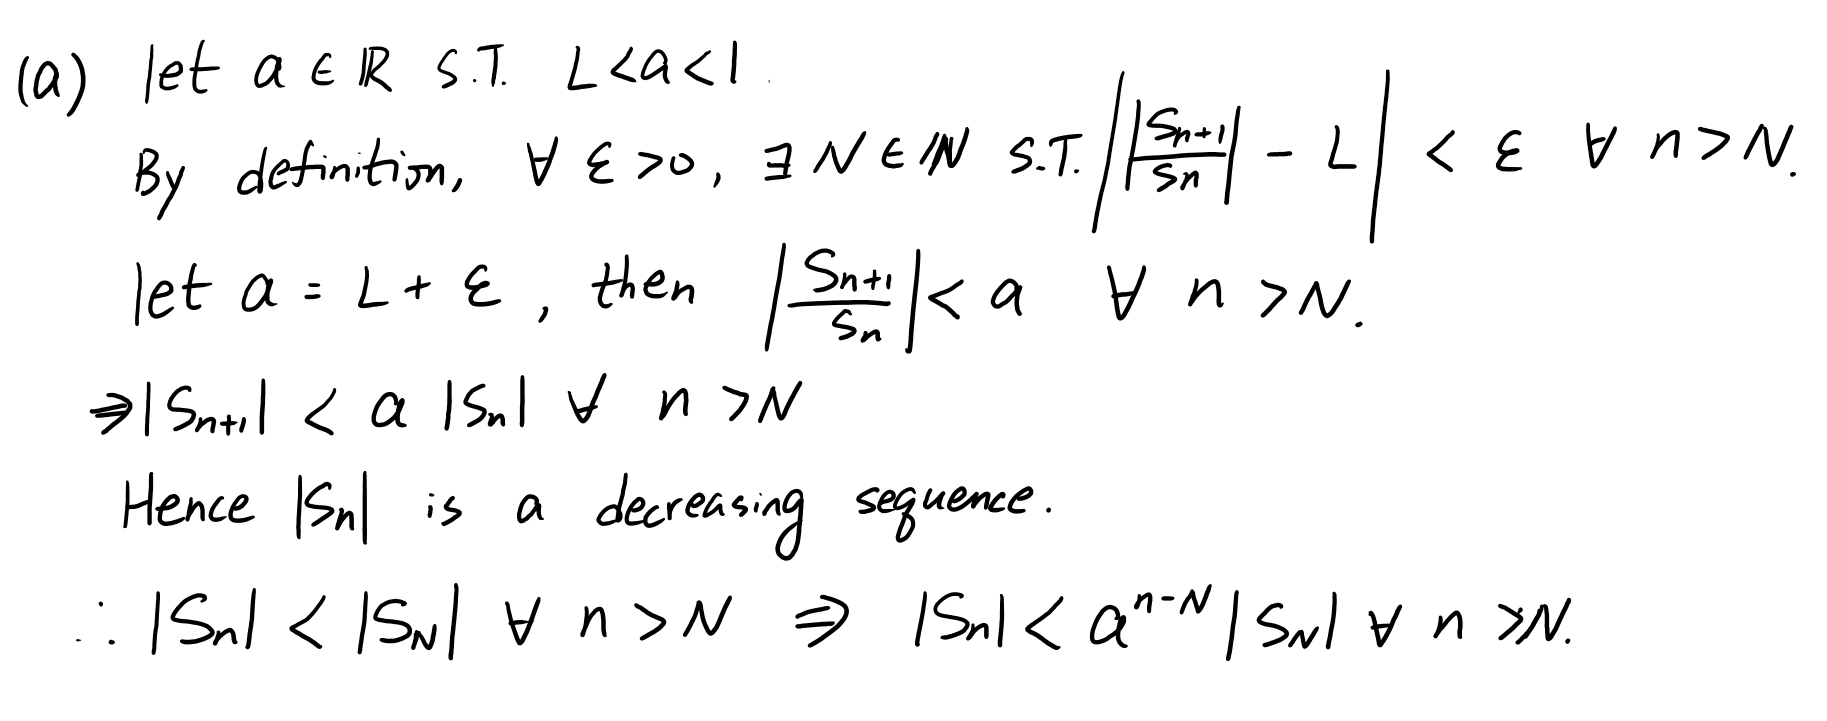 (a) let a ∈ ℝ S.T. L<a<1.
By definition, ∀ ε>0, ∃ N ∈ ℕ S.T. ||Sn+1/Sn| - L| < ε ∀ n>N.
let a = L + ε, then |Sn+1/Sn| < a ∀ n >N.
⇒|Sn+1| < a |Sn| ∀ n >N
Hence |Sn| is a decreasing sequence.
∴ |Sn| < |SN| ∀ n >N ⇒ |Sn| < a^(n-N) |SN| ∀ n >N.